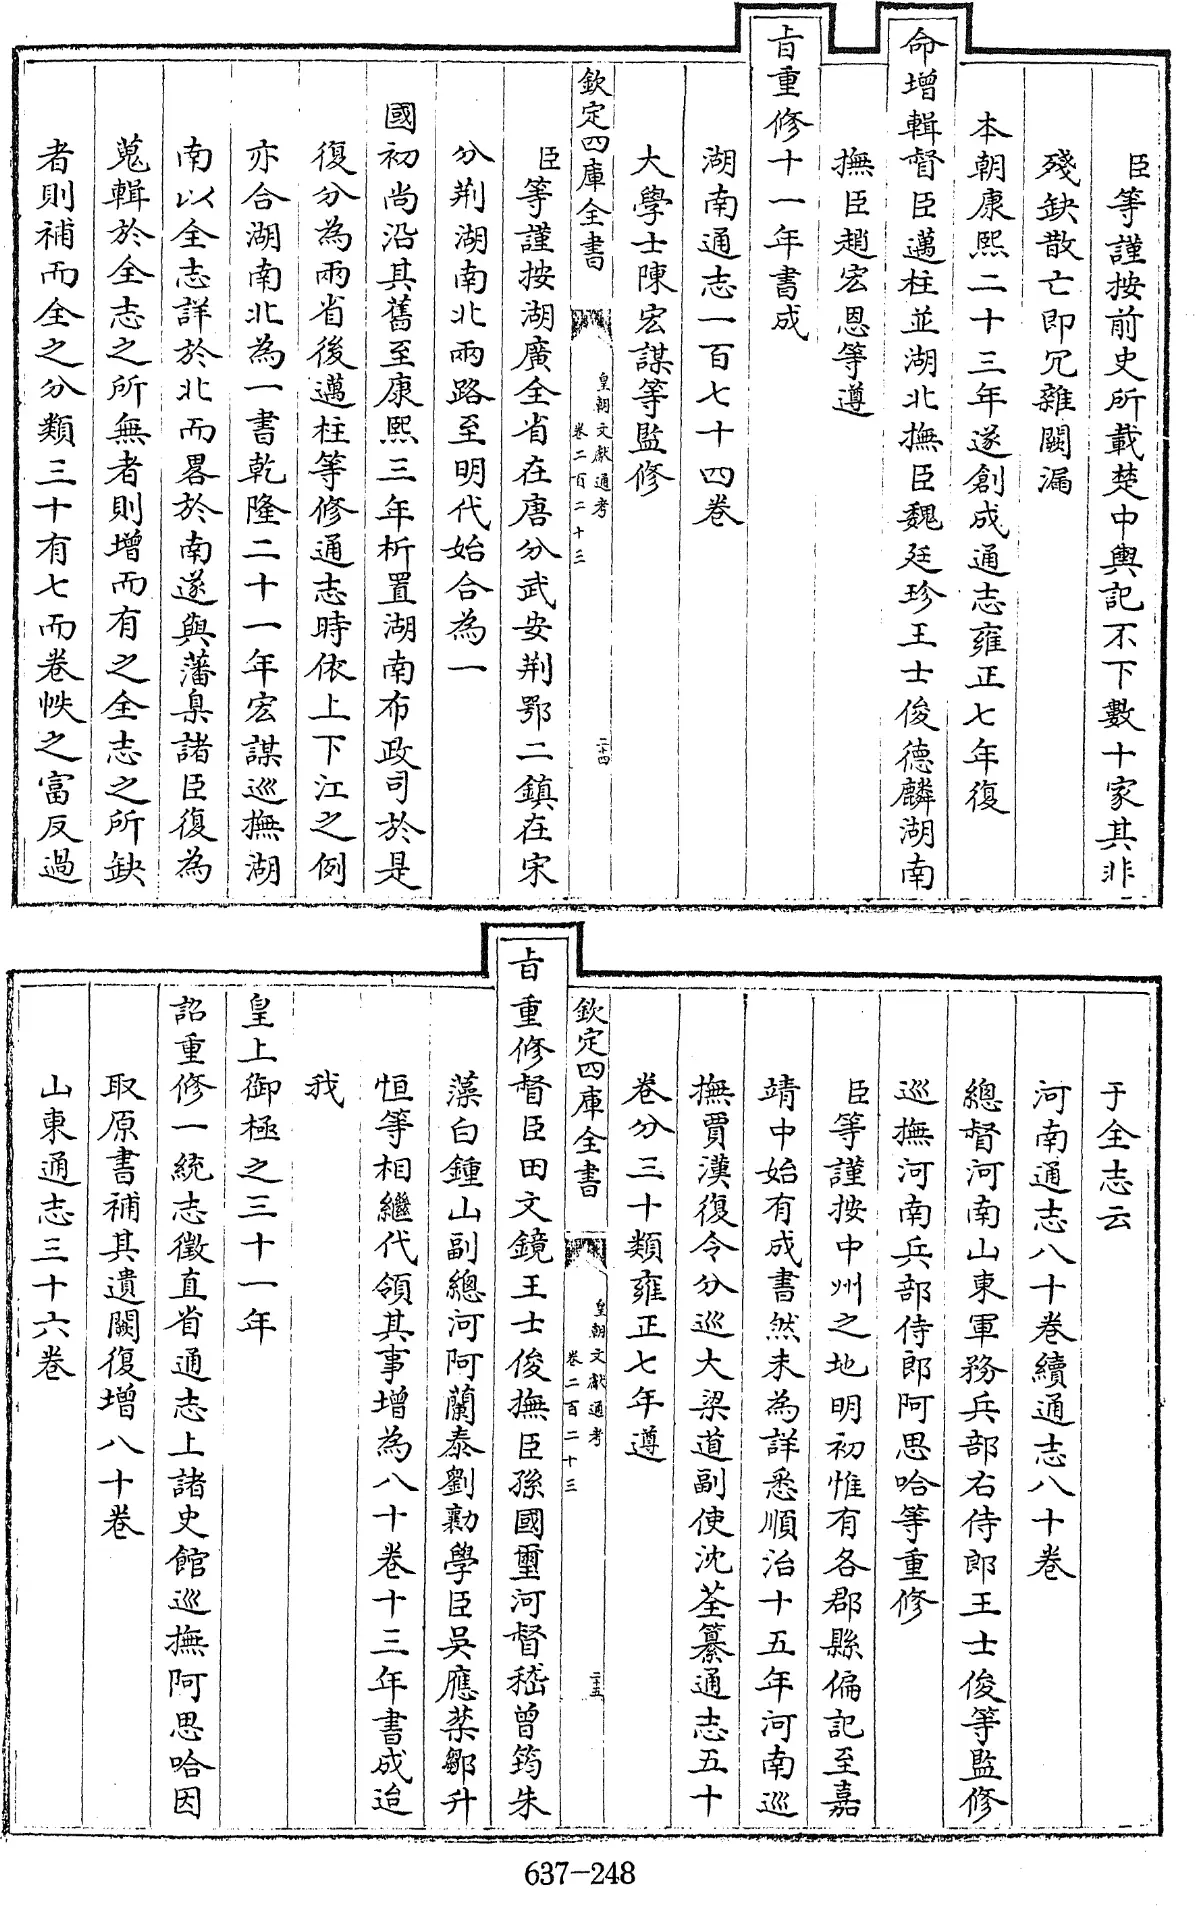 臣等謹按前史所載楚中輿記不下數十家其非
殘缺散亡即冗雜闕漏
本朝康熙二十三年遂創成通志雍正七年復
命增輯督臣邁柱並湖北撫臣魏廷珍王士俊德麟湖南
撫臣趙宏恩等遵
旨重修十一年書成
湖南通志一百七十四卷
大學士陳宏謀等監修
欽定四庫全書
皇朝文獻通考
卷二百二十三
二十四
臣等謹按湖廣全省在唐分武安荆鄂二鎮在宋
分荆湖南北兩路至明代始合為一
國初尚沿其舊至康熙三年析置湖南布政司於是
復分為兩省後邁柱等修通志時依上下江之例
亦合湖南北為一書乾隆二十一年宏謀巡撫湖
南以全志詳於北而畧於南遂與藩臬諸臣復為
蒐輯於全志之所無者則增而有之全志之所缺
者則補而全之分類三十有七而卷帙之富反過
于全志云
河南通志八十卷續通志八十卷
總督河南山東軍務兵部右侍郎王士俊等監修
巡撫河南兵部侍郎阿思哈等重修
臣等謹按中州之地明初惟有各郡縣偏記至嘉
靖中始有成書然未為詳悉順治十五年河南巡
撫賈漢復令分巡大梁道副使沈荃纂通志五十
卷分三十類雍正七年遵
欽定四庫全書
皇朝文獻通考
卷二百二十三
二十五
旨重修督臣田文鏡王士俊撫臣孫國璽河督嵇曾筠朱
藻白鍾山副總河阿蘭泰劉勷學臣吳應棻鄒升
恒等相繼代領其事增為八十卷十三年書成迨
我
皇上御極之三十一年
詔重修一統志徵直省通志上諸史館巡撫阿思哈因
取原書補其遺闕復增八十卷
山東通志三十六卷
637-248